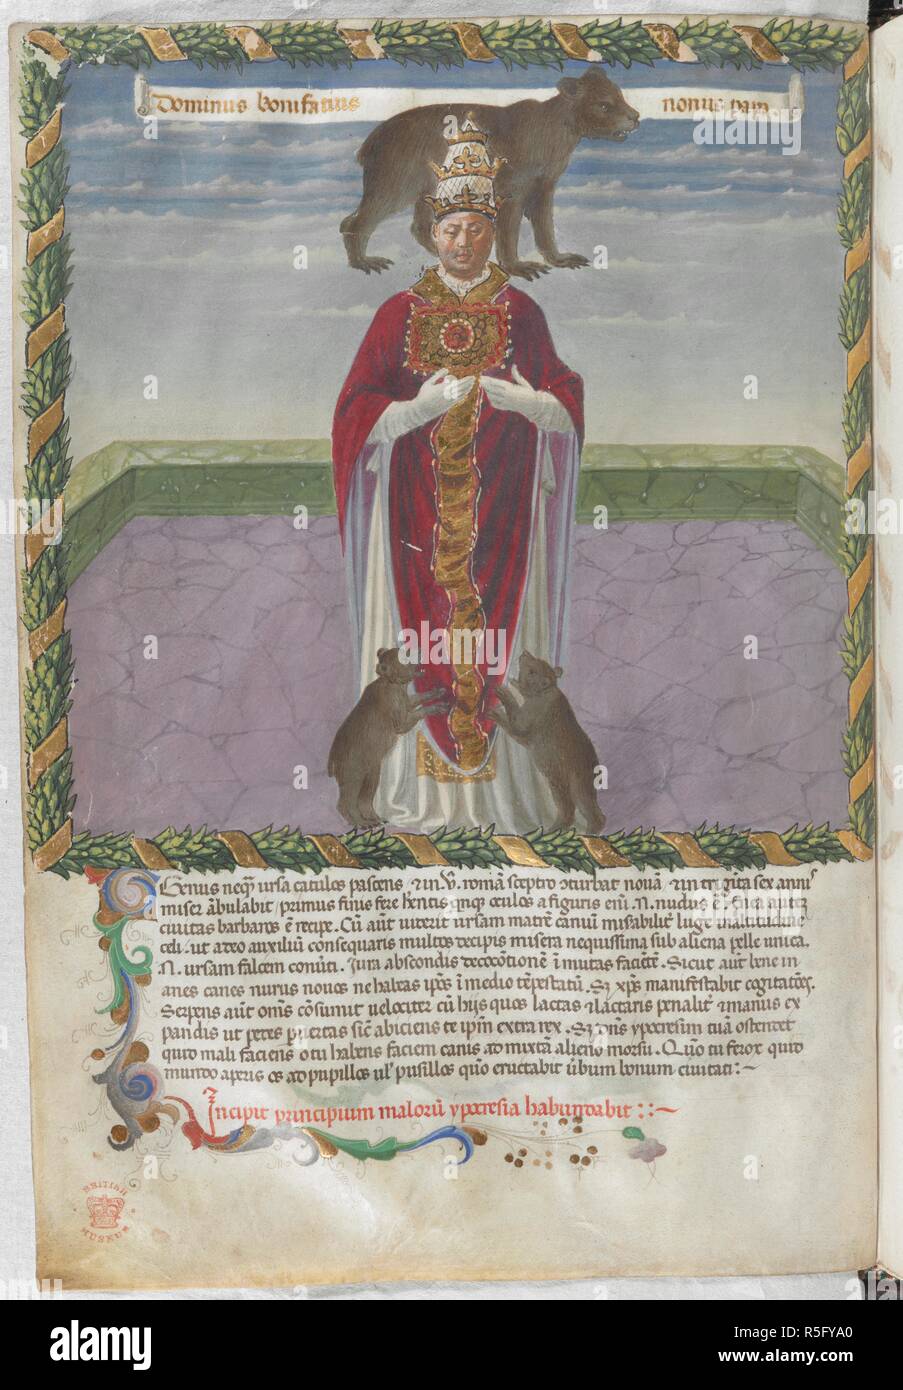 Dominus bonifatius nonus papa
Genus neq̃ ursa catulos pascens ⁊ in V. romã sceptro ↄturbat nouã ⁊ in trigĩta sex annis
miser ãbulabit primus finis fere
ciuitas barbanos ẽ recipe. Cũ aũt uiderit ursam matrẽ canum misabilit̃ luge in altitudine
celi. ut a deo auxiliũ consequaris multos decipis misera nequissima sub aliena pelle unica.
N. ursam falcem Jura abscondis deuotionẽ ĩ mutas faciẽ. Sicut aũt bene in
anes canes nurus nouos ne habeas ip̃os ĩ medio tẽpestatũ. S; xp̃s manifestabit cogitatões.
Serpens aũt om̃s cõsumit uelociter cũ hijs quos lactas ⁊ lactaris penalit̃ ⁊ manus ex
pandis ut petes pietas sic abiciens te ip̃m extra rex. S; dñs ypocresim tuã ostendet
quid mali faciens o tu habens faciem canis admixtã alieno morsu. Quõ tu ferox quid
mundo aperis os ad pupillos ul' pusillos quõ eructabit ũbum bonum ciuitati :~
Incipit principium malorũ ypocresia habundabit ::~
BRITISH MUSEUM
alamy
Image ID: R5FYA0
www.alamy.com